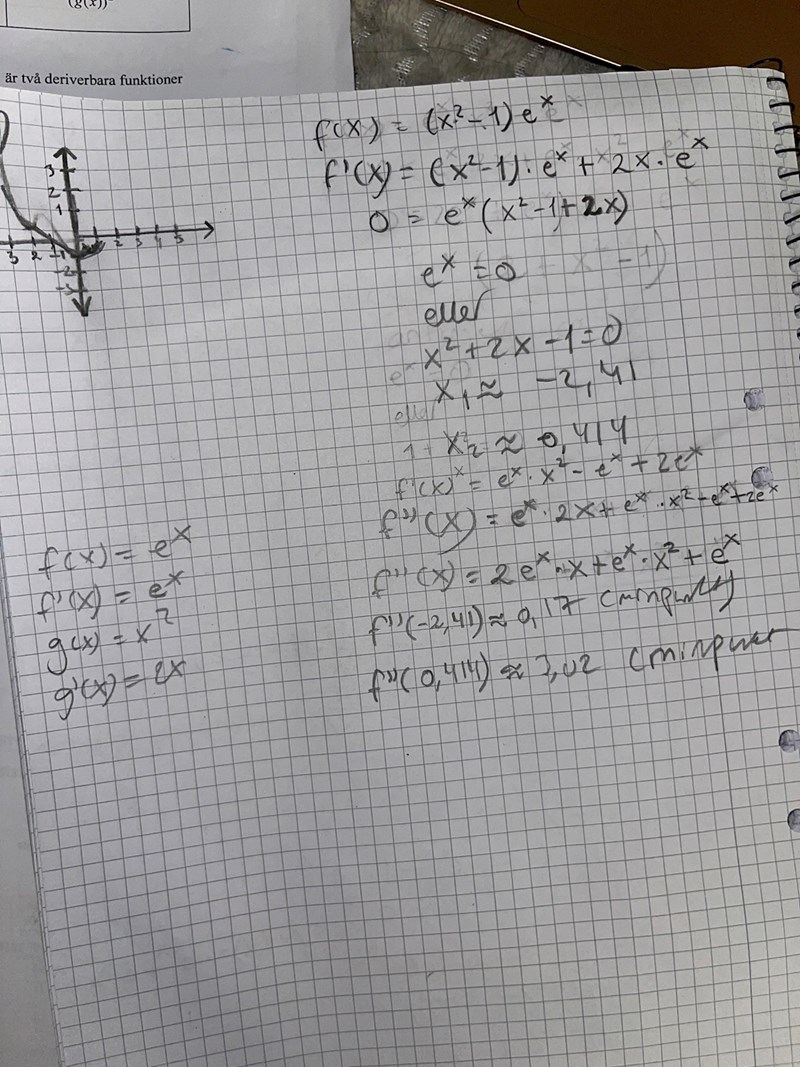 (g(x))
är två deriverbara funktioner
3
2
1
3 2 -1 2 3 4 5
-2
-3
f(x) = (x²-1) eˣ
f'(x) = (x²-1)·eˣ + 2x·eˣ
0 = eˣ(x²-1+2x)
eˣ = 0
eller
x²+2x-1=0
x₁ ≈ -2,41
x₂ ≈ 0,414
f'(x) = eˣ·x² - eˣ + 2eˣ
f''(x) = eˣ·2x + eˣ·x² - eˣ + 2eˣ
f''(x) = 2eˣ·x + eˣ·x² + eˣ
f''(-2,41) ≈ 0,17 (minpunkt)
f''(0,414) ≈ 3,02 (minpunkt
f(x) = eˣ
f'(x) = eˣ
g(x) = x²
g'(x) = 2x